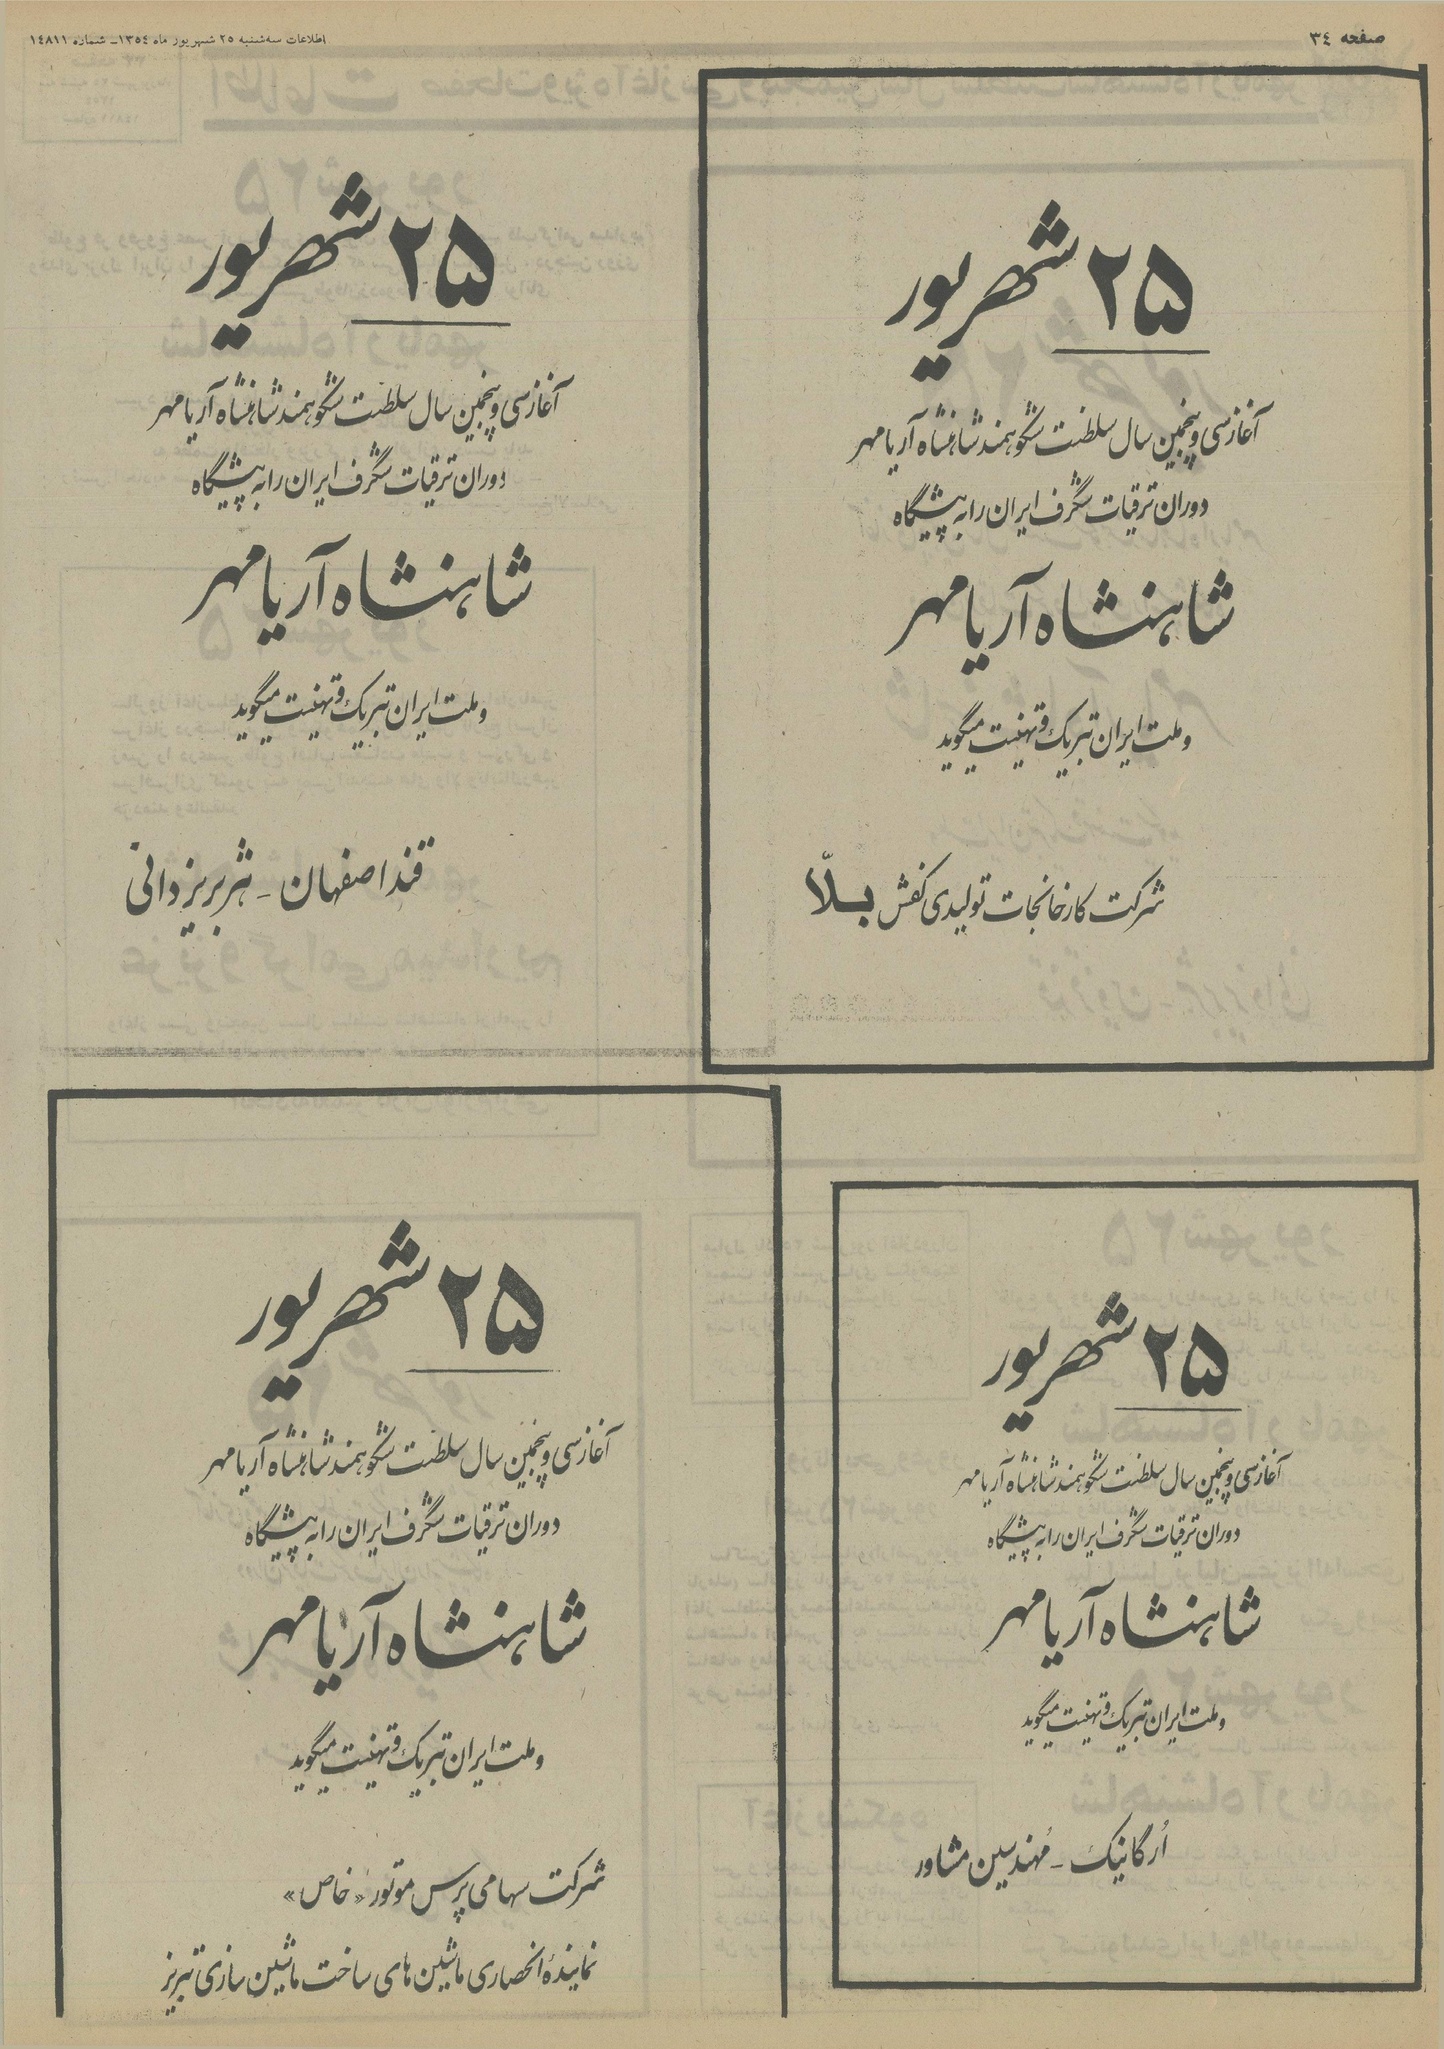 صفحه ٣٤
اطلاعات سه‌شنبه ٢٥ شهریور ماه ١٣٥٤ـ شماره ١٤٨١١
۲۵ شهریور
آغاز سی و پنجمین سال سلطنت شکوهمند شاهنشاه آریامهر
دوران ترقیات شگرف ایران را به پیشگاه
شاهنشاه آریامهر
و ملت ایران تبریک و تهنیت میگوید
شرکت کارخانجات تولیدی کفش بلّا
۲۵ شهریور
آغاز سی و پنجمین سال سلطنت شکوهمند شاهنشاه آریامهر
دوران ترقیات شگرف ایران را به پیشگاه
شاهنشاه آریامهر
و ملت ایران تبریک و تهنیت میگوید
قند اصفهان ـ شربر یزدانی
۲۵ شهریور
آغاز سی و پنجمین سال سلطنت شکوهمند شاهنشاه آریامهر
دوران ترقیات شگرف ایران را به پیشگاه
شاهنشاه آریامهر
و ملت ایران تبریک و تهنیت میگوید
اُرگانیک ـ مُهندسین مشاور
۲۵ شهریور
آغاز سی و پنجمین سال سلطنت شکوهمند شاهنشاه آریامهر
دوران ترقیات شگرف ایران را به پیشگاه
شاهنشاه آریامهر
و ملت ایران تبریک و تهنیت میگوید
شرکت سهامی پرس موتور «خاص»
نمایندهٔ انحصاری ماشین های ساخت ماشین سازی تبریز